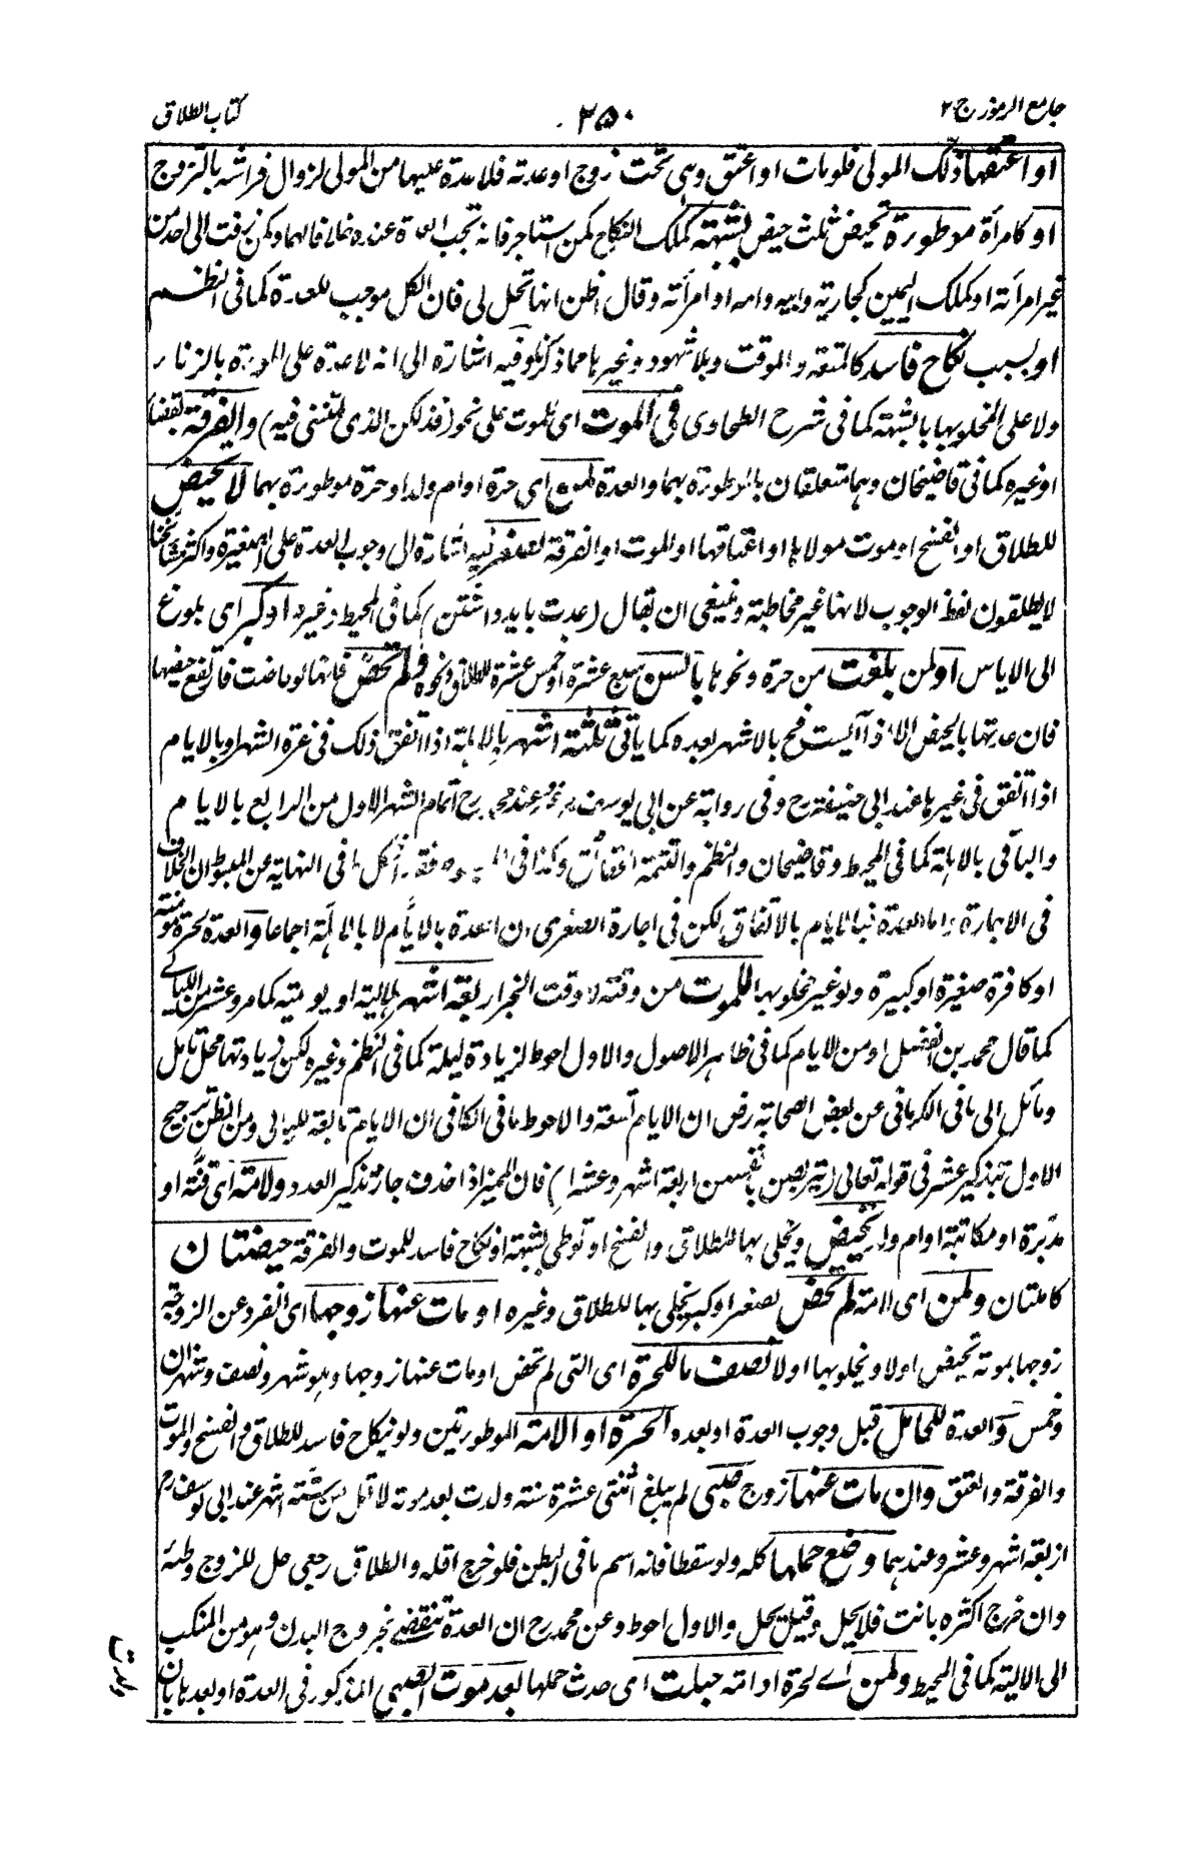 جامع الرموز ج ٢
٣٥٠
كتاب الطلاق
او اعتقها ذلك المولى فلو مات او اعتق وهى تحت زوج او عدته فلا عدة عليها من المولى لزوال فراشه بالتزوج
او كامرأة موطورة تحيض ثلث حيض بشبهته كملك النكاح كمن استاجر فانه تجب العدة عنده خلافا لهما وكمن زفت الى احد من
غير امرأته او كملك اليمين كجارية وابيه وامه او امرأته وقال اظن انها تحل لى فان الكل موجب للعدة كما فى النظم
او بسبب نكاح فاسد كالمتعة والموقت وبلا شهود وغيرها مما ذكر وفيه اشارة الى انه لا عدة على بالزنا
ولا على المخلو بها بالشبهة كما فى شرح الطحاوى فى الموت اى للموت على نحو (فذلكن الذى لمتننى فيه) والفرقة بقضاء
او غيره كما فى قاضيخان وهما متعلقان بالموطورة بهما والعدة لمن اى حرة او ام ولد او حرة موطورة بهما لا تحيض
للطلاق او الفسخ او موت مولاها او اعتاقها او الموت او الفرقة لصغر فيه اشارة الى وجوب العدة على الصغيرة واكثر مشائخنا
لا يطلقون لفظ الوجوب لانها غير مخاطبة وينبغى ان يقال (عدت بايد داشتن) كما فى المحيط وغيره او كبر اى بلوغ
الى الاياس او لمن بلغت من حرة ونحوها بالسن سبع عشرة او خمس عشرة للطلاق ونحوه ولم تحض فانها لو حاضت فارتفع حيضها
فان عدتها بالحيض الا اذا آيست فح بالاشهر بعده كما ياتى ثلثة اشهر بالاهلة اذا اتفق ذلك فى غرة الشهر او بالايام
اذا اتفق فى غيرها عند ابى حنيفة رح وفى رواية عن ابى يوسف رح وعند محمد رح اتمام الشهر الاول من الرابع بالايام
والباقى بالاهلة كما فى المحيط وقاضيخان والنظم والتتمة وكذا فى فى النهاية عن المبسوط ان الخلاف
فى الاجارة واما العدة فبالايام بالاتفاق لكن فى اجارة الصغرى ان العدة بالايام لا بالاهلة اجماعا والعدة لحرة مؤمنة
او كافرة صغيرة او كبيرة ولو غير مخلو بها للموت من وقته لا وقت الخبر اربعة اشهر هلالية او يومية كما مر وعشر من الليالى
كما قال محمد بن الفضل او من الايام كما فى ظاهر الاصول والاول احوط لزيادة ليلة كما فى النظم وغيره لكن زيادتها محل تامل
ومائل الى ما فى الكرمانى عن بعض الصحابة رض ان الايام تسعة والاحوط ما فى الكافى ان الايام تابعة لليالى ومن الظن ترجيح
الاول بتذكير عشر فى قوله تعالى (يتربصن بانفسهن اربعة اشهر وعشرا) فان المميز اذا حذف جاز تذكير العدد ولامته اى قنة او
مدبرة او مكاتبة او ام ولد تحيض ويخلى بها للطلاق والفسخ او توطى بشبهة او نكاح فاسد للموت والفرقة حيضتان
كاملتان ولمن اى لامة لم تحض لصغر او كبر يخلى بها للطلاق وغيره او مات عنها زوجها اى انفرد عن الزوجة
زوجها بموته تحيض او لا ويخلو بها او لا نصف ما للحرة اى التى لم تحض او مات عنها زوجها وهو شهر ونصف وشهران
وخمس والعدة للحامل قبل وجوب العدة او بعده الحرة او الامة الموطورتين ولو نكاح فاسد للطلاق والفسخ والموت
والفرقة والعتق وان مات عنها زوج صبى لم يبلغ اثنتى عشرة سنة ولدت بعد موته لاقل من ستة اشهر عند ابى يوسف رح
اربعة اشهر وعشر وعندهما وضع حملها كله ولو سقطا فانه اسم ما فى البطن فلو خرج اقله والطلاق رجعى حل للزوج وطئه
وان خرج اكثره بانت فلا يحل وقيل يحل والاول احوط وعن محمد رح ان العدة تنقضى بخروج البدن وهو من المنكب
الى الالية كما فى المحيط ولمن اى لحرة او امة حبلت اى حدث حملها بعد موت الصبى المذكور فى العدة او بعدها بان
ولدت